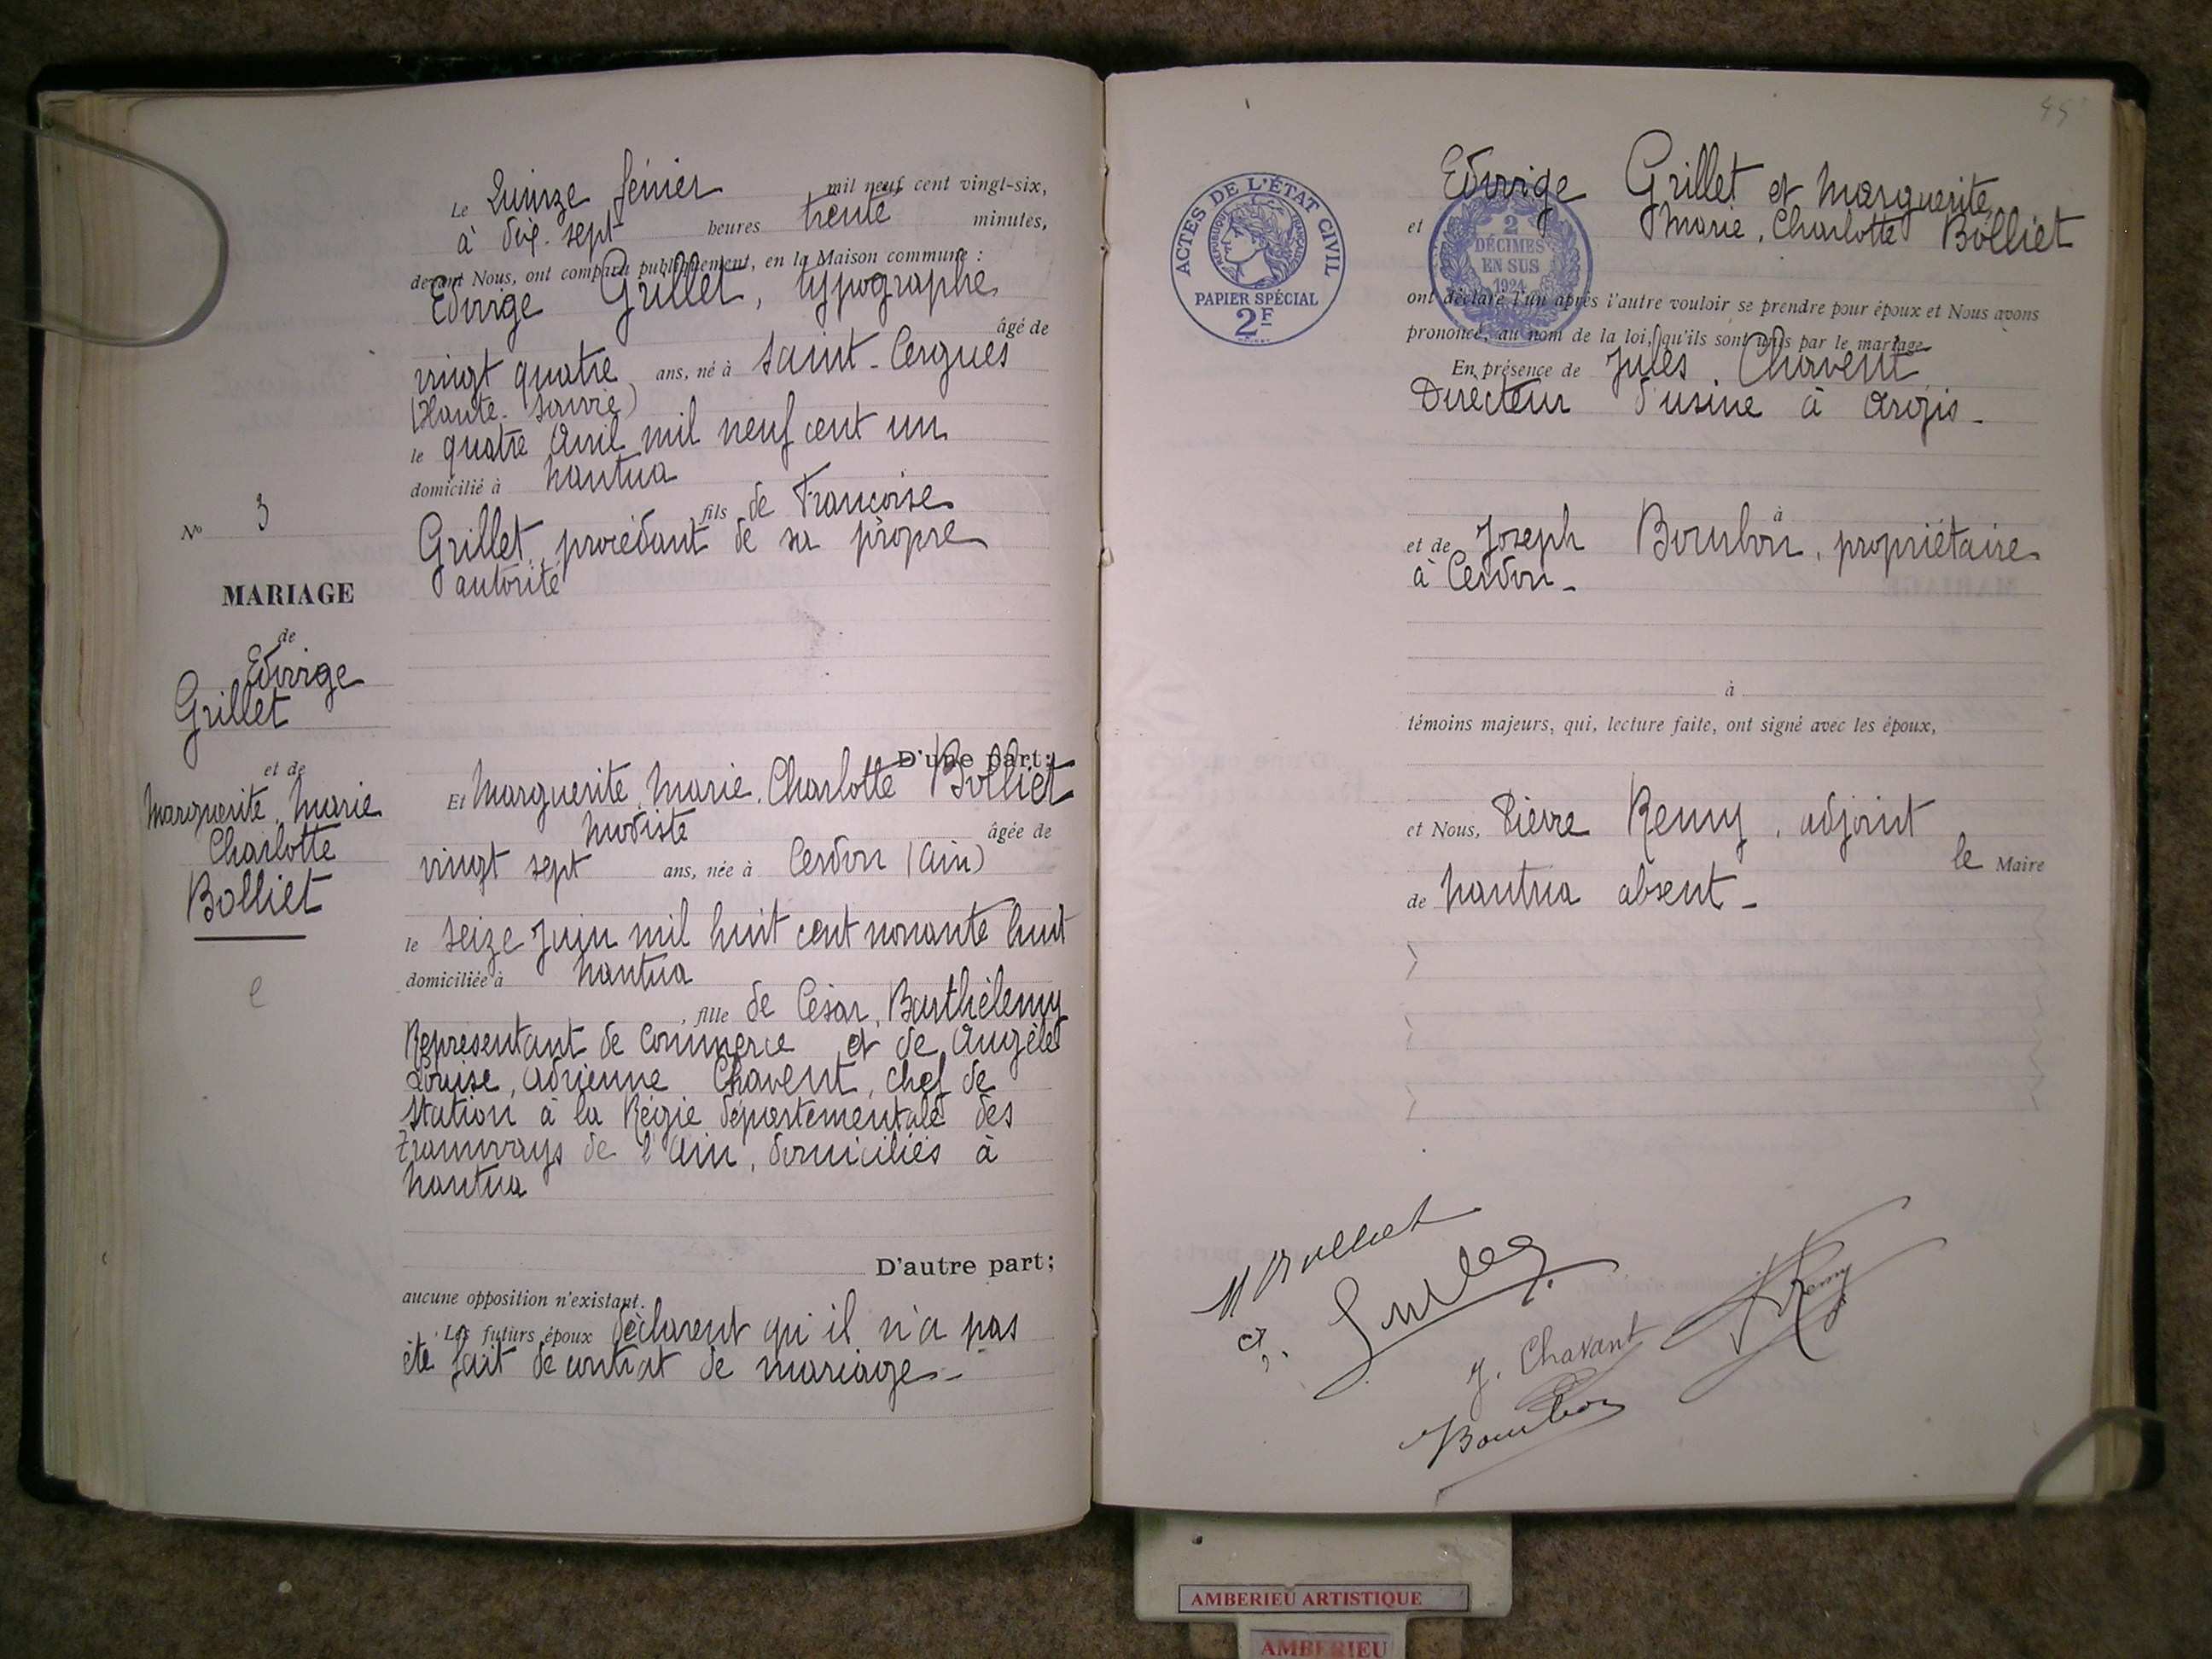 Le Quinze février mil neuf cent vingt-six,
à dix-sept heures trente minutes,
devant Nous, ont comparu publiquement, en la Maison commune :
Edwige Grillet, typographe
âgé de
vingt quatre ans, né à Saint-Cergues
(Haute-Savoie)
le quatre Avril mil neuf cent un
domicilié à Nantua
fils de Françoise
Grillet, procédant de sa propre
autorité
N° 3
MARIAGE
de
Edwige
Grillet
et de
Marguerite, Marie
Charlotte
Bolliet
e
D'une part;
Et Marguerite, Marie, Charlotte Bolliet
modiste âgée de
vingt sept ans, née à Cerdon (Ain)
le seize Juin mil huit cent nonante huit
domiciliée à Nantua
, fille de César, Barthélemy
Représentant de commerce et de Angèle
Louise, Adrienne Chavent, chef de
station à la Régie départementale des
tramways de l'Ain, domiciliés à
Nantua
D'autre part;
aucune opposition n'existant.
Les futurs époux déclarent qu'il n'a pas
été fait de contrat de mariage-
45
ACTES DE L'ÉTAT CIVIL
RÉPUBLIQUE FRANÇAISE
PAPIER SPÉCIAL
2F
2
DÉCIMES
EN SUS
1924
Edwige Grillet et Marguerite,
et Marie, Charlotte Bolliet
ont déclaré l'un après l'autre vouloir se prendre pour époux et Nous avons
prononcé, au nom de la loi, qu'ils sont unis par le mariage.
En présence de Jules Chavent
Directeur d'usine à Argis-
à
et de Joseph Bourbon, propriétaire
à Cerdon-
à
témoins majeurs, qui, lecture faite, ont signé avec les époux,
et Nous, Pierre Remy, adjoint
le Maire
de Nantua absent-
M Bolliet
J. Chavant
Remy
Bourbon
AMBERIEU ARTISTIQUE
AMBERIEU